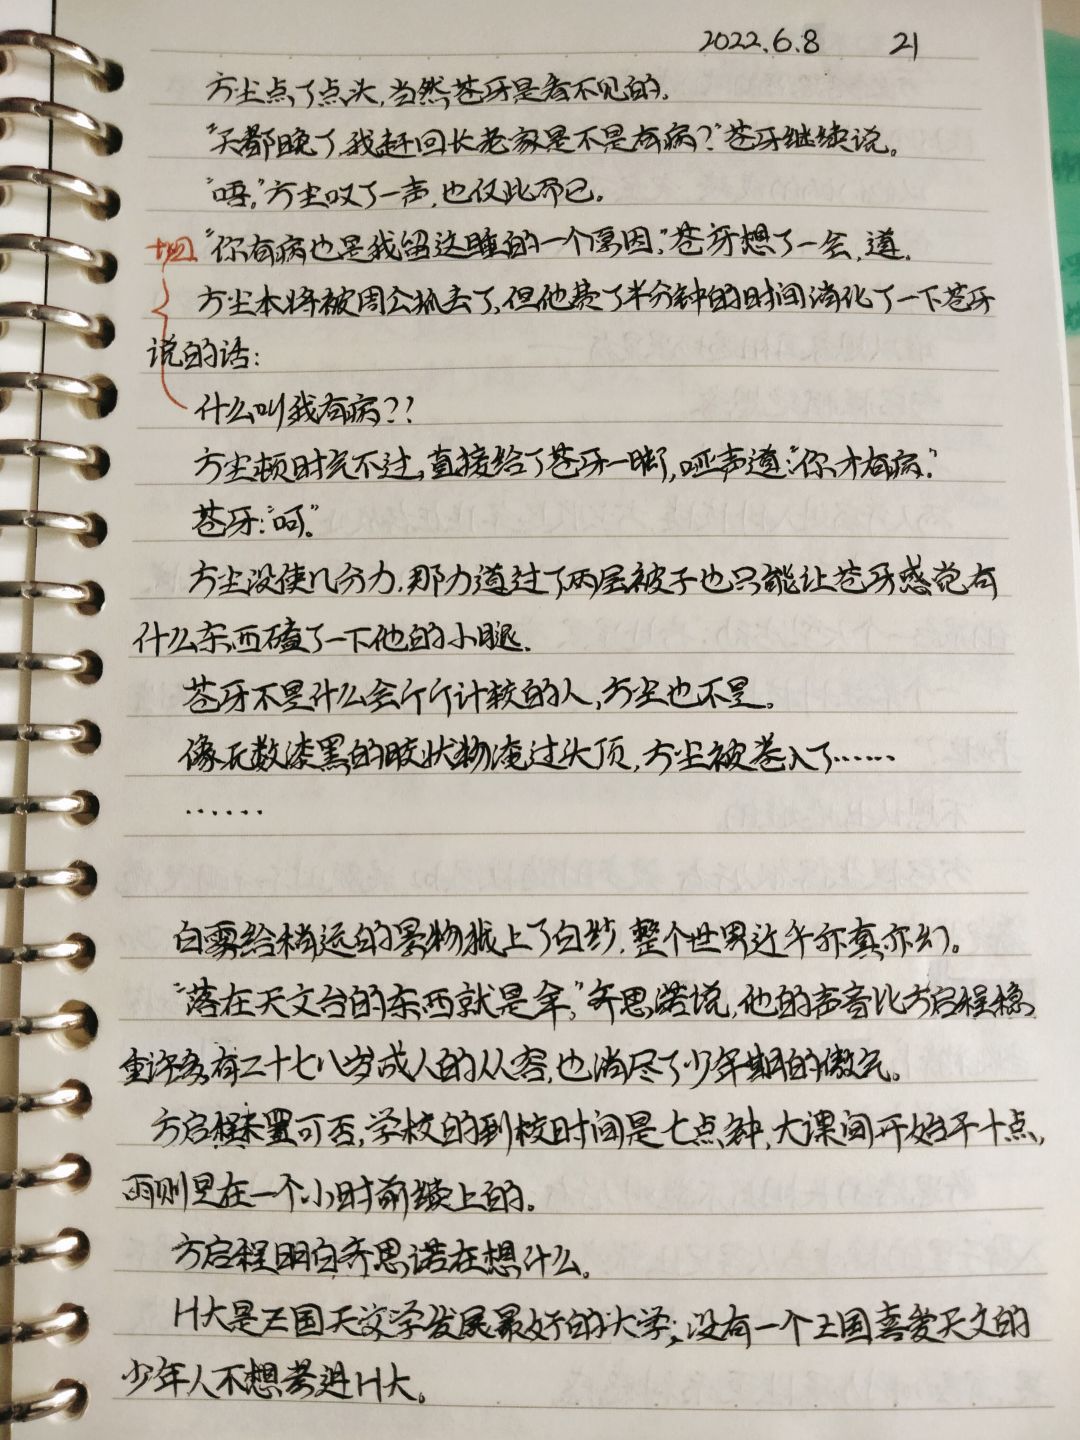 2022.6.8 21
方尘点了点头,当然苍牙是看不见的。
“天都晚了,我赶回长老家是不是有病?”苍牙继续说。
“唔。”方尘叹了一声,也仅此而已。
“你有病也是我留这睡的一个原因。”苍牙想了一会,道。
方尘本将被周公抓去了,但他费了半分钟的时间消化了一下苍牙
说的话:
什么叫我有病??
方尘顿时气不过,直接给了苍牙一脚,哑声道:“你才有病。”
苍牙:“呵。”
方尘没使几分力,那力道过了两层被子也只能让苍牙感觉有
什么东西碰了一下他的小腿.
苍牙不是什么会斤斤计较的人,方尘也不是。
像无数漆黑的胶状物淹过头顶,方尘被卷入了……
……
白雾给稍远的景物拢上了白纱,整个世界近乎亦真亦幻。
“落在天文台的东西就是伞,”齐思诺说,他的声音比方启程稳
重许多,有二十七八岁成人的从容,也消尽了少年期的傲气。
方启程未置可否,学校的到校时间是七点钟,大课间开始于十点,
雨则是在一个小时前续上的。
方启程明白齐思诺在想什么。
H大是王国天文学发展最好的大学;没有一个王国喜爱天文的
少年人不想考进H大。